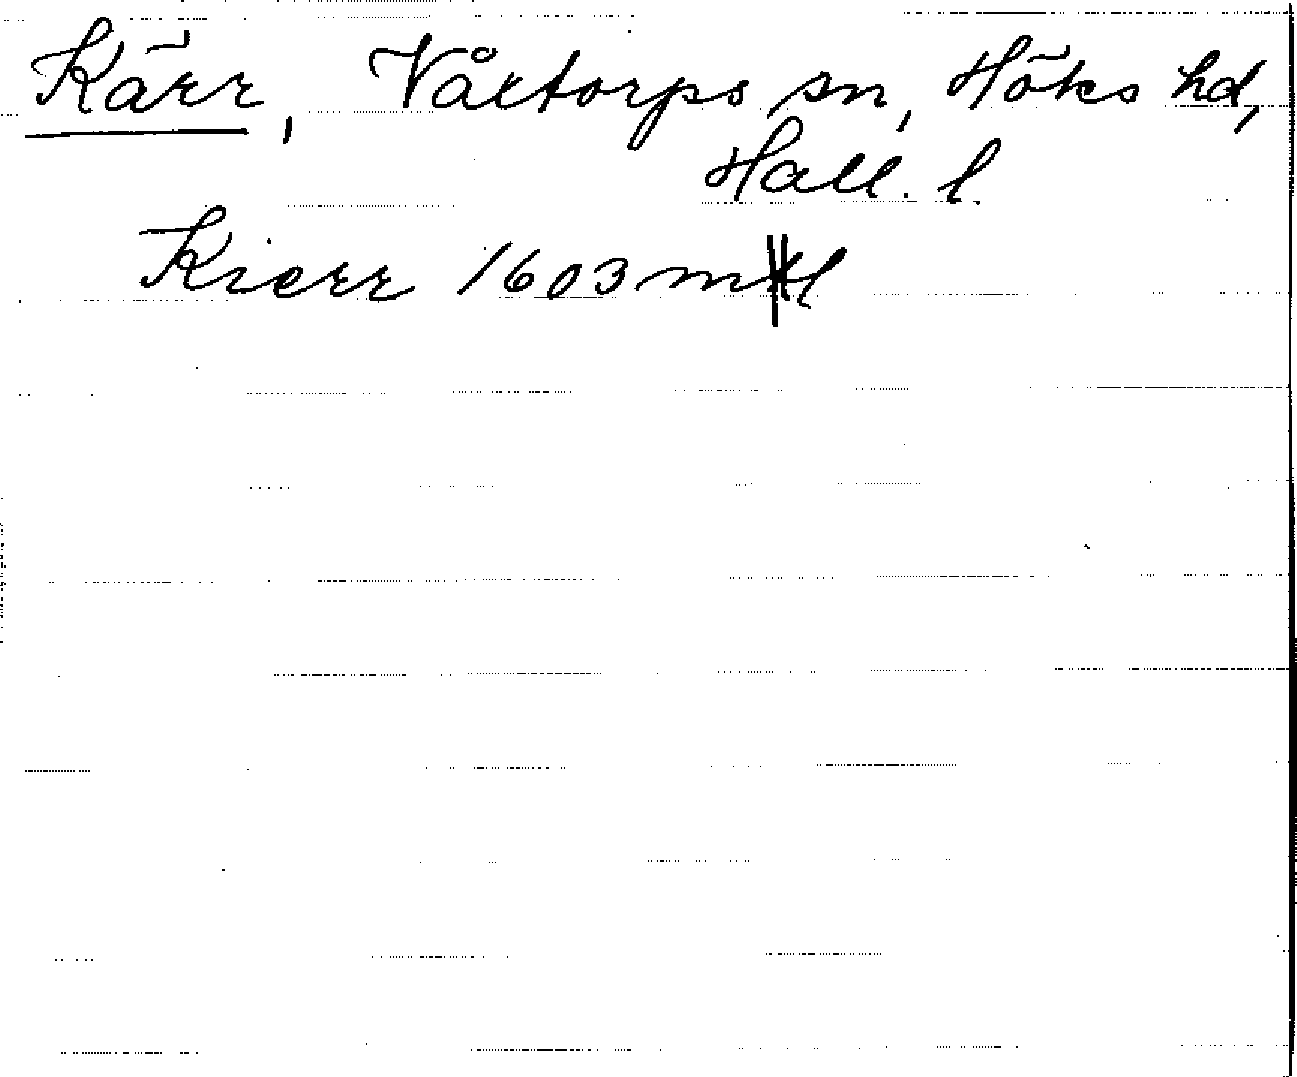 Kärr, Våxtorps sn, Höks hd,
Hall. l.
Kierr 1603 mtl